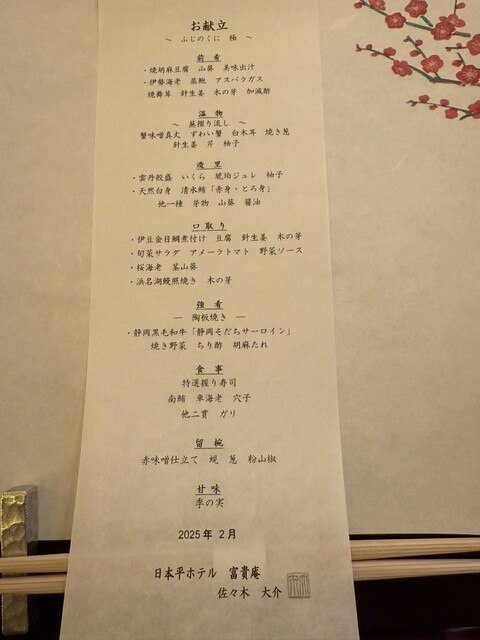 お献立
～ ふじのくに 極 ～
前 肴
・焼胡麻豆腐 山葵 美味出汁
・伊勢海老 蒸鮑 アスパラガス
焼舞茸 針生姜 木の芽 加減酢
温 物
～ 蕪摺り流し ～
蟹味噌真丈 ずわい蟹 白木耳 焼き葱
針生姜 芹 柚子
造 里
・雲丹殻盛 いくら 琥珀ジュレ 柚子
・天然白身 清水鮪「赤身・とろ身」
他一種 芽物 山葵 醤油
口取り
・伊豆金目鯛煮付け 豆腐 針生姜 木の芽
・旬菜サラダ アメーラトマト 野菜ソース
・桜海老 茎山葵
・浜名湖鰻照焼き 木の芽
強 肴
― 陶板焼き ―
・静岡黒毛和牛「静岡そだちサーロイン」
焼き野菜 ちり酢 胡麻たれ
食 事
特選握り寿司
南鮪 車海老 穴子
他二貫 ガリ
留 椀
赤味噌仕立て 蜆 葱 粉山椒
甘 味
季の実
2025年 2月
日本平ホテル 富貴庵
佐々木 大介